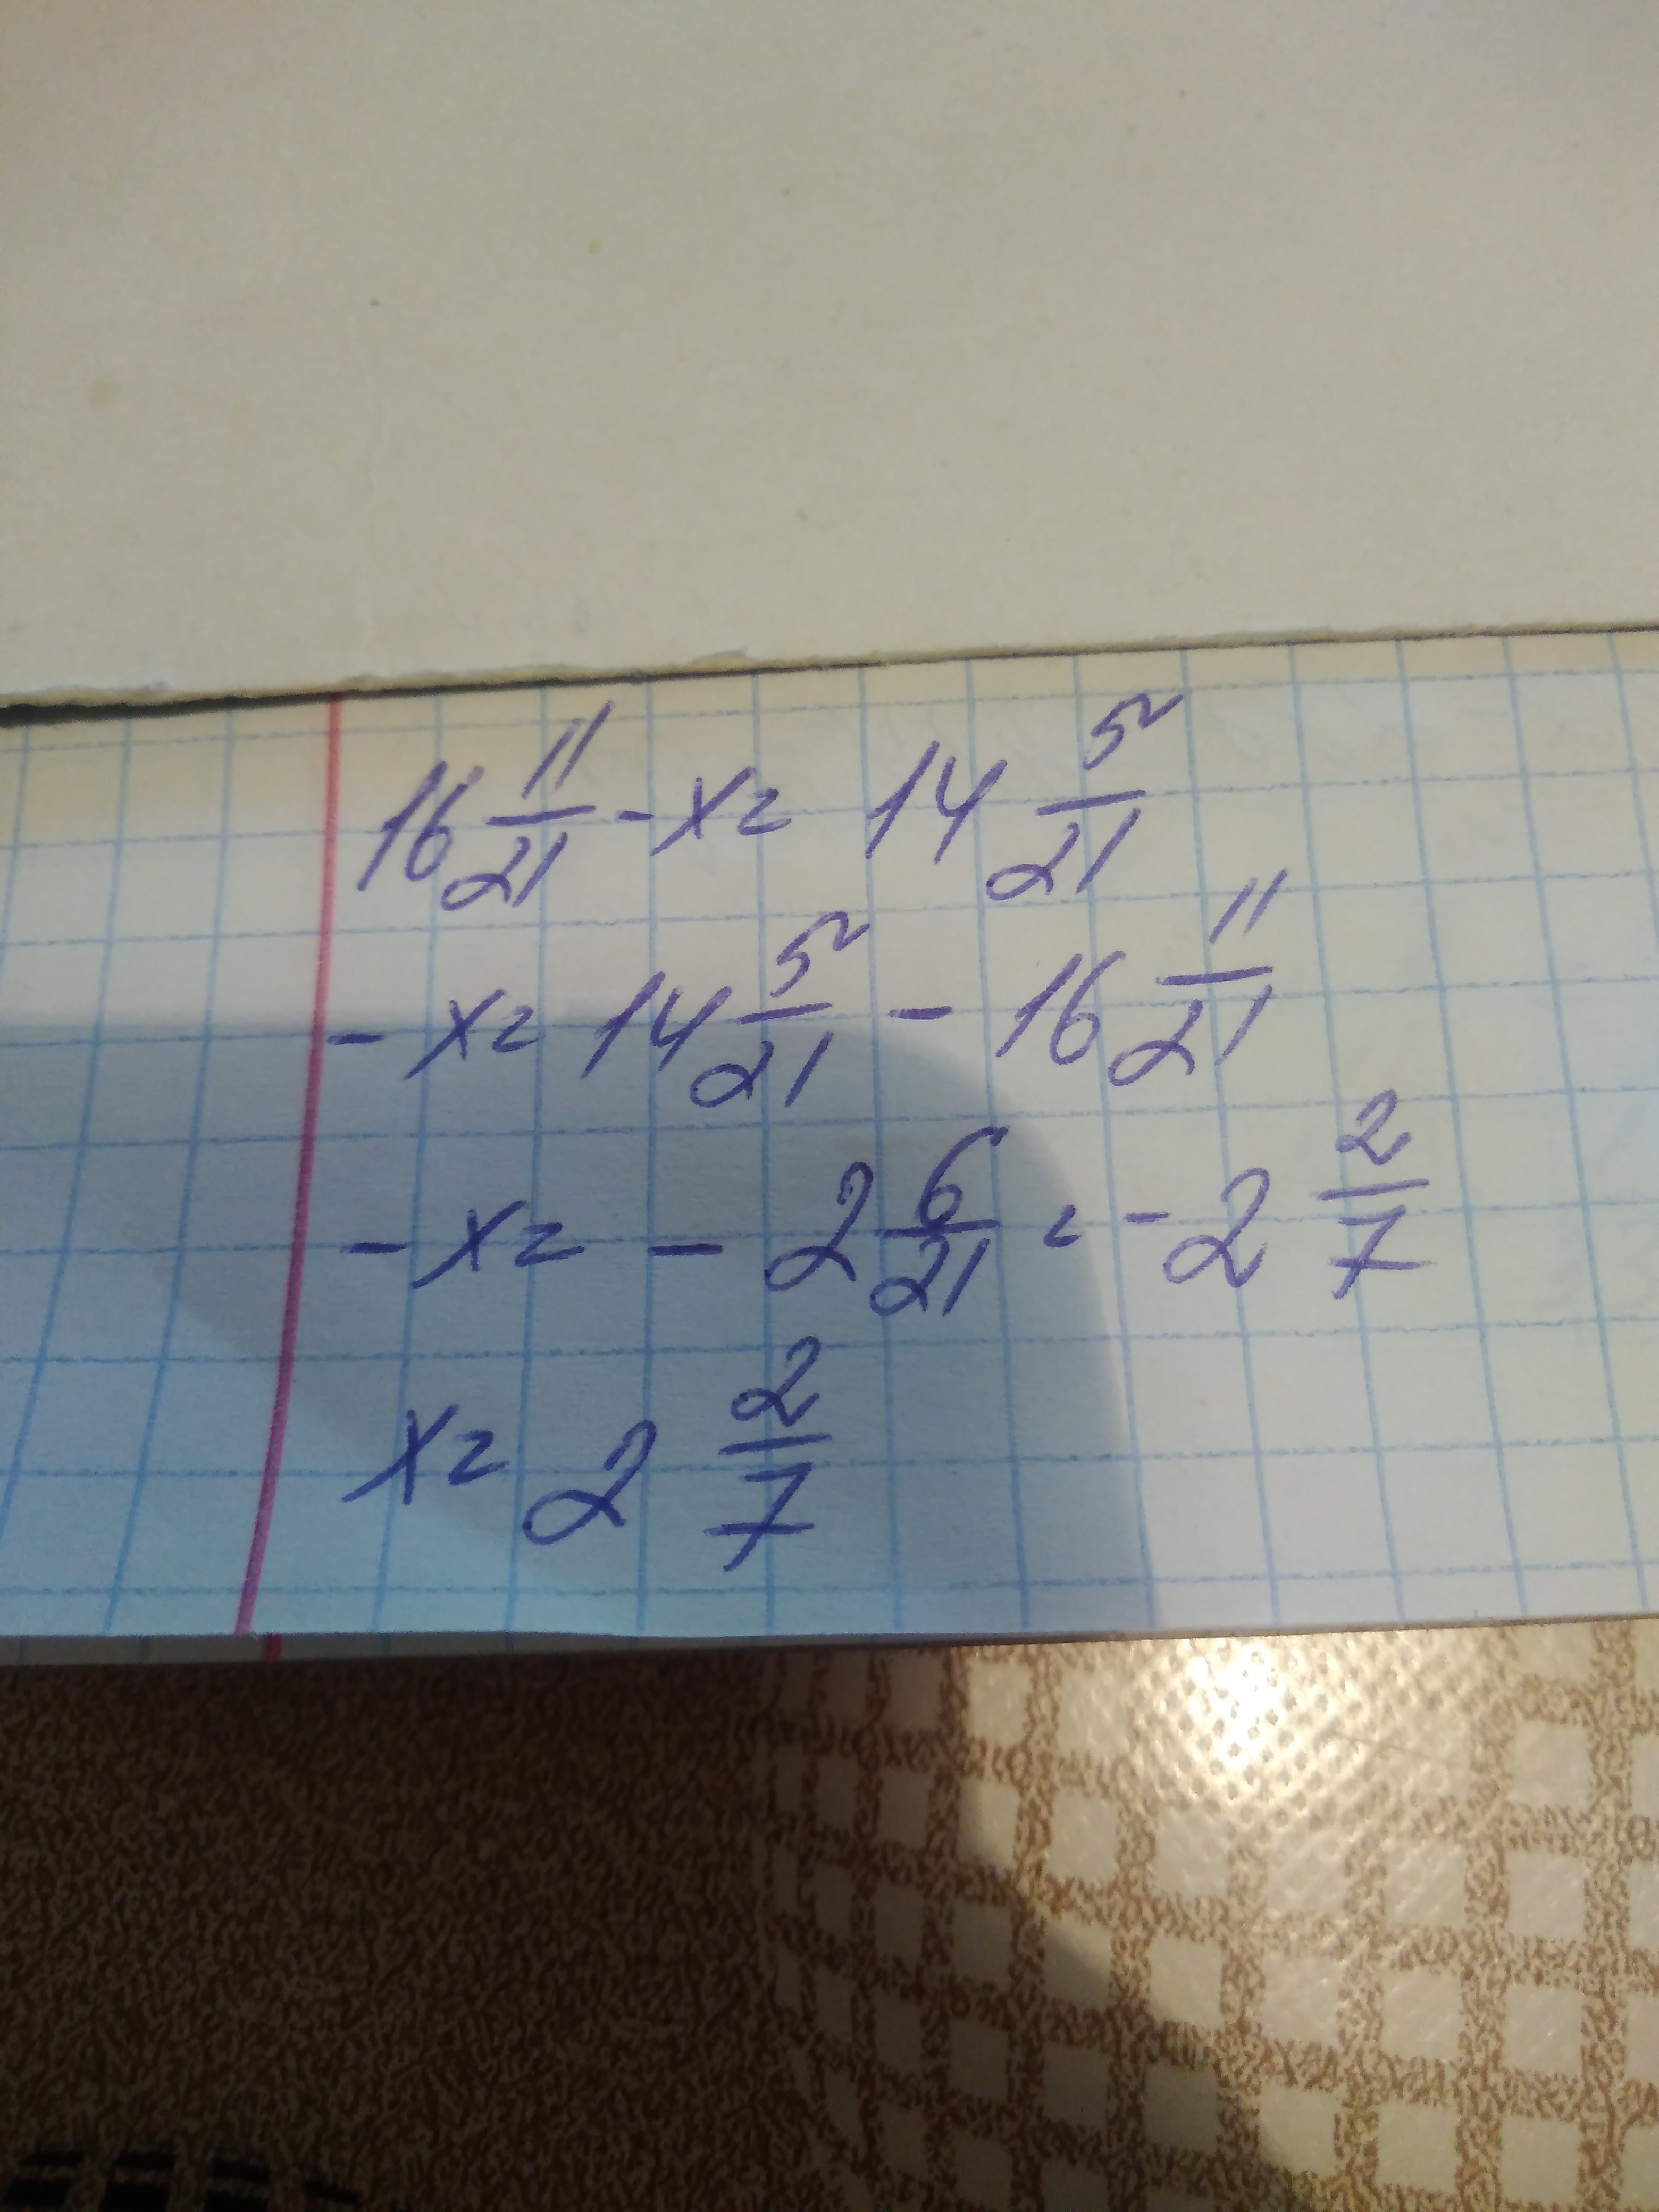 16 11/21 - x = 14 5/21
- x = 14 5/21 - 16 11/21
- x = - 2 6/21 = - 2 2/7
x = 2 2/7